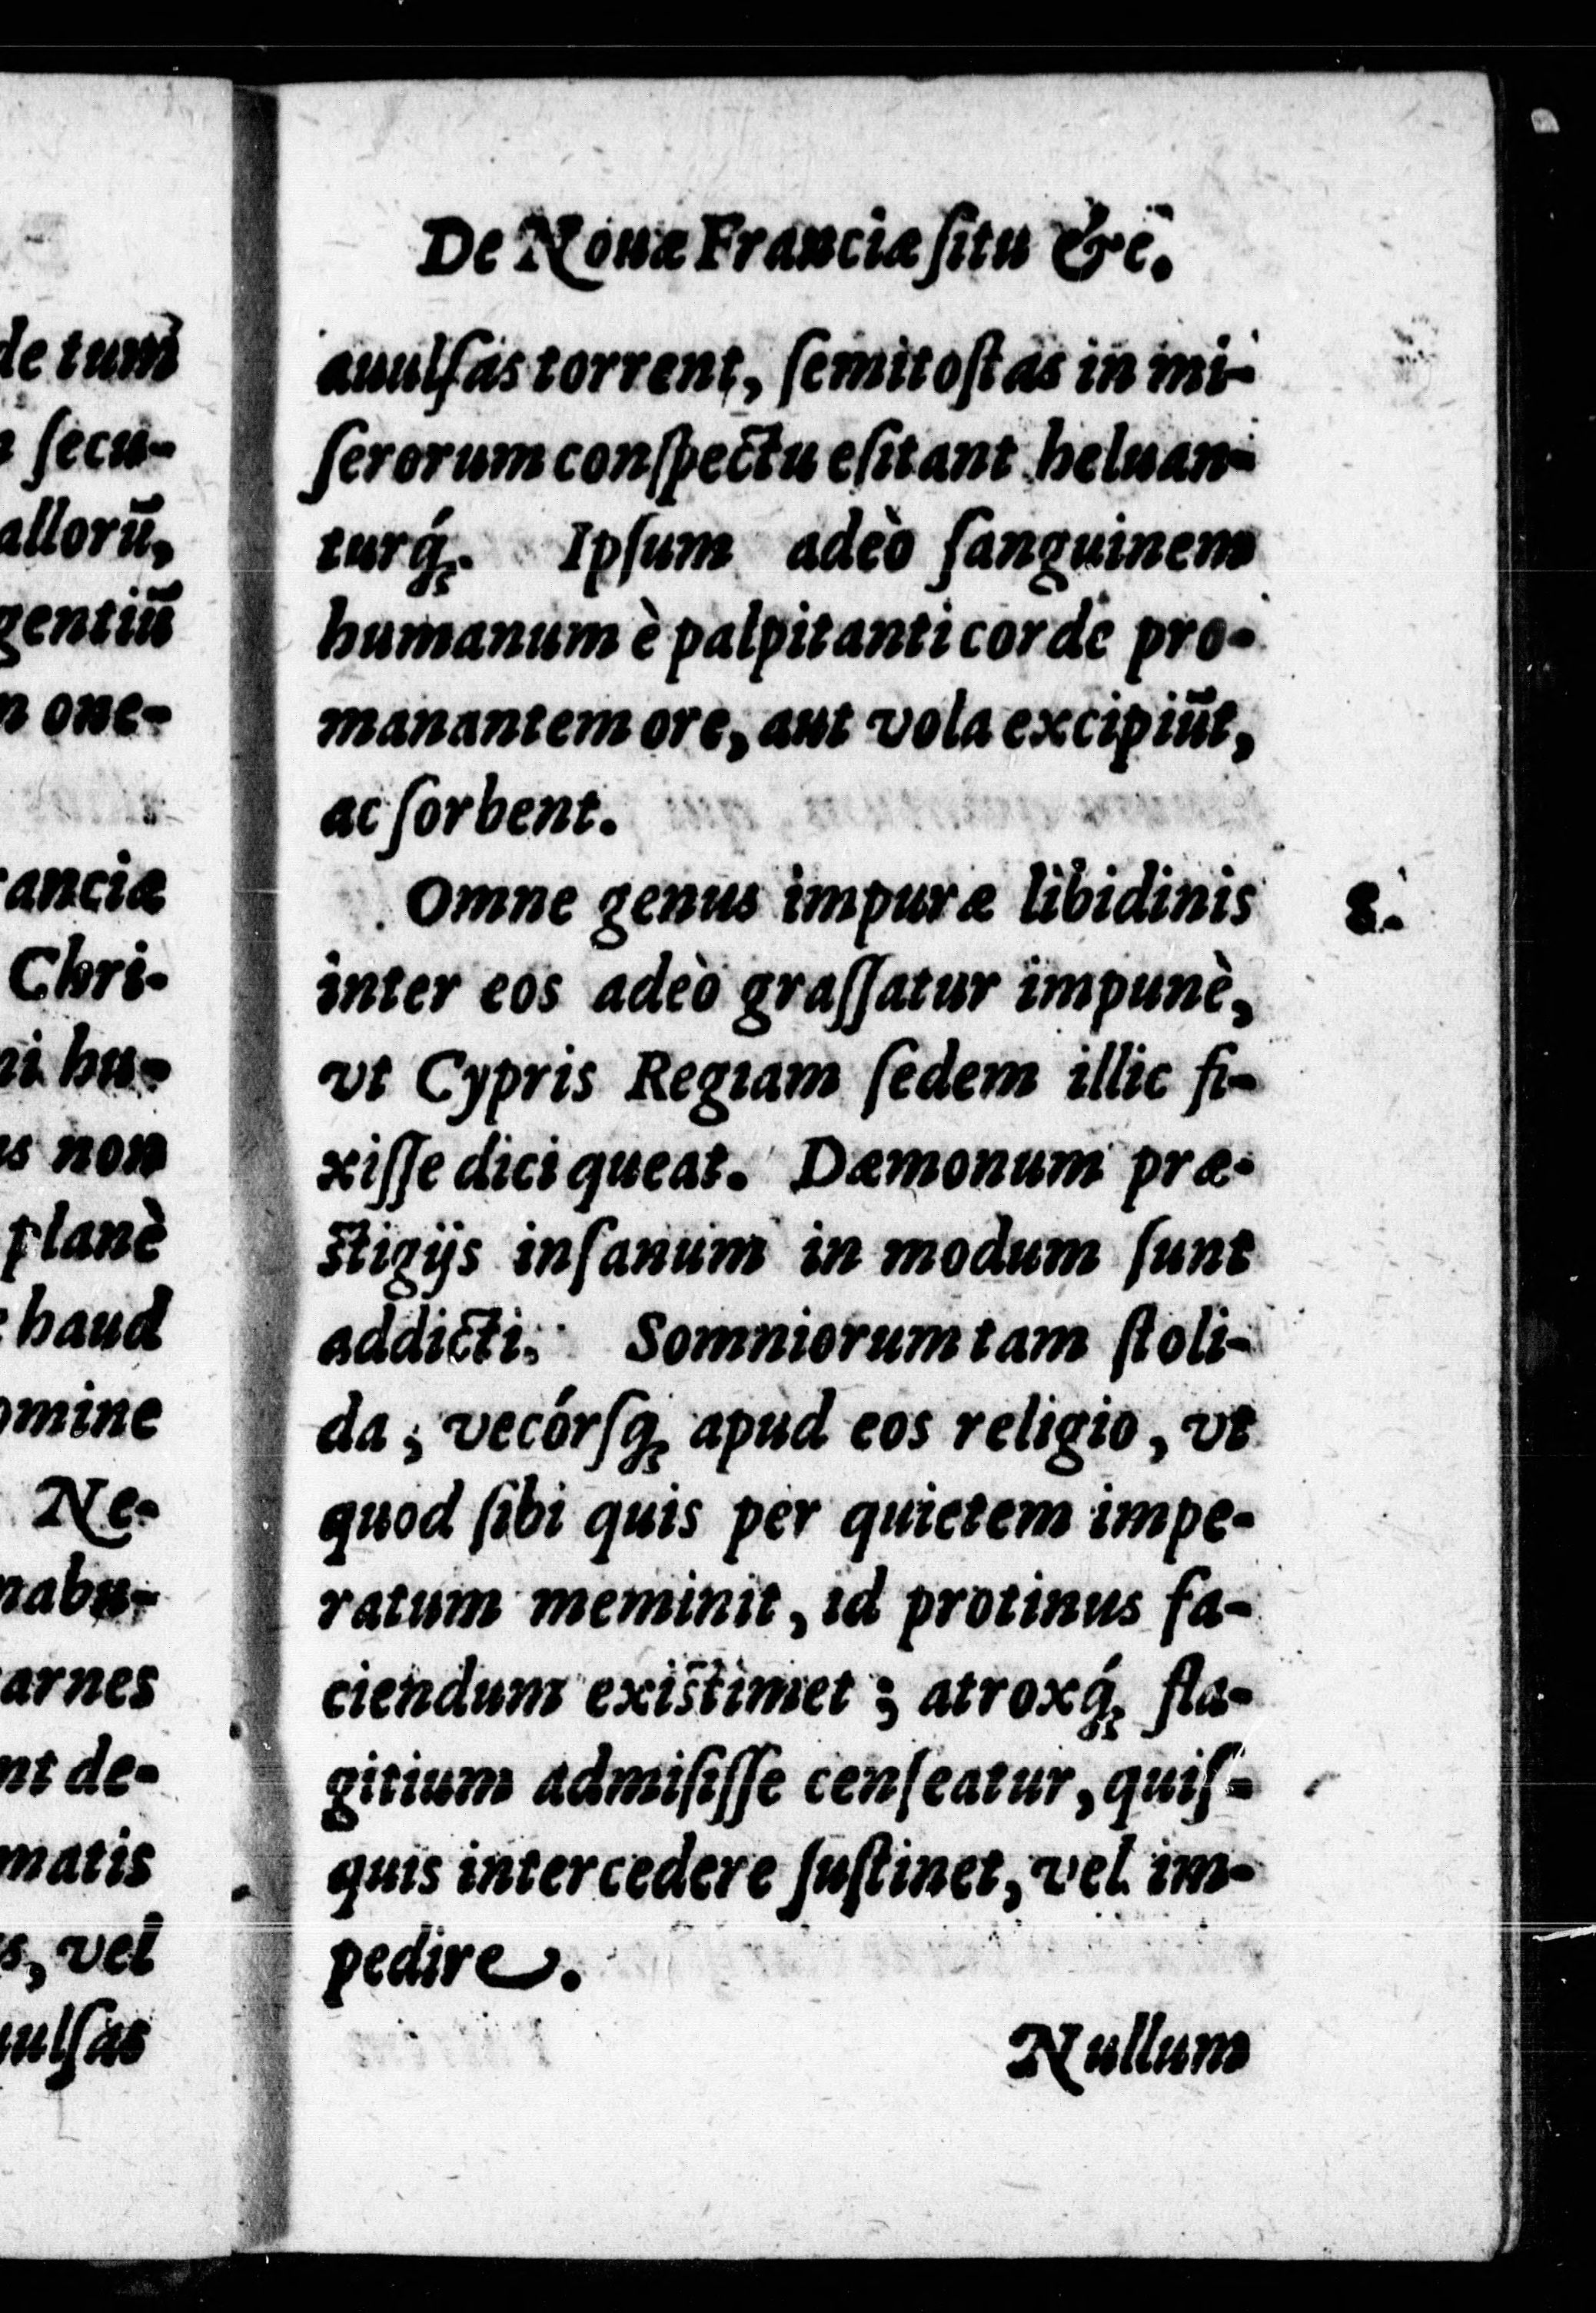 de tum
secu-
alloru̅,
gentiu̅
one-
ranciæ
Chri-
ni hu-
us non
planè
haud
omine
Ne-
nabu-
arnes
nt de-
matis
s, vel
uulſas
De Nouæ Franciæ ſitu &c.
auulſas torrent, ſemitoſtas in mi-
ſerorum conſpectu eſitant heluan-
turq́;. Ipſum adeò ſanguinem
humanum è palpitanti corde pro-
manantem ore, aut vola excipiu̅t,
ac ſorbent.
Omne genus impuræ libidinis
8.
inter eos adeò graſſatur impunè,
vt Cypris Regiam ſedem illic fi-
xiſſe dici queat. Dæmonum præ-
ſtigijs inſanum in modum ſunt
addicti. Somniorum tam ſtoli-
da, vecórſq; apud eos religio, vt
quod ſibi quis per quietem impe-
ratum meminit, id protinus fa-
ciendum exiſtimet; atroxq́; fla-
gitium admiſiſſe cenſeatur, quiſ-
quis intercedere ſuſtinet, vel im-
pedire.
Nullum